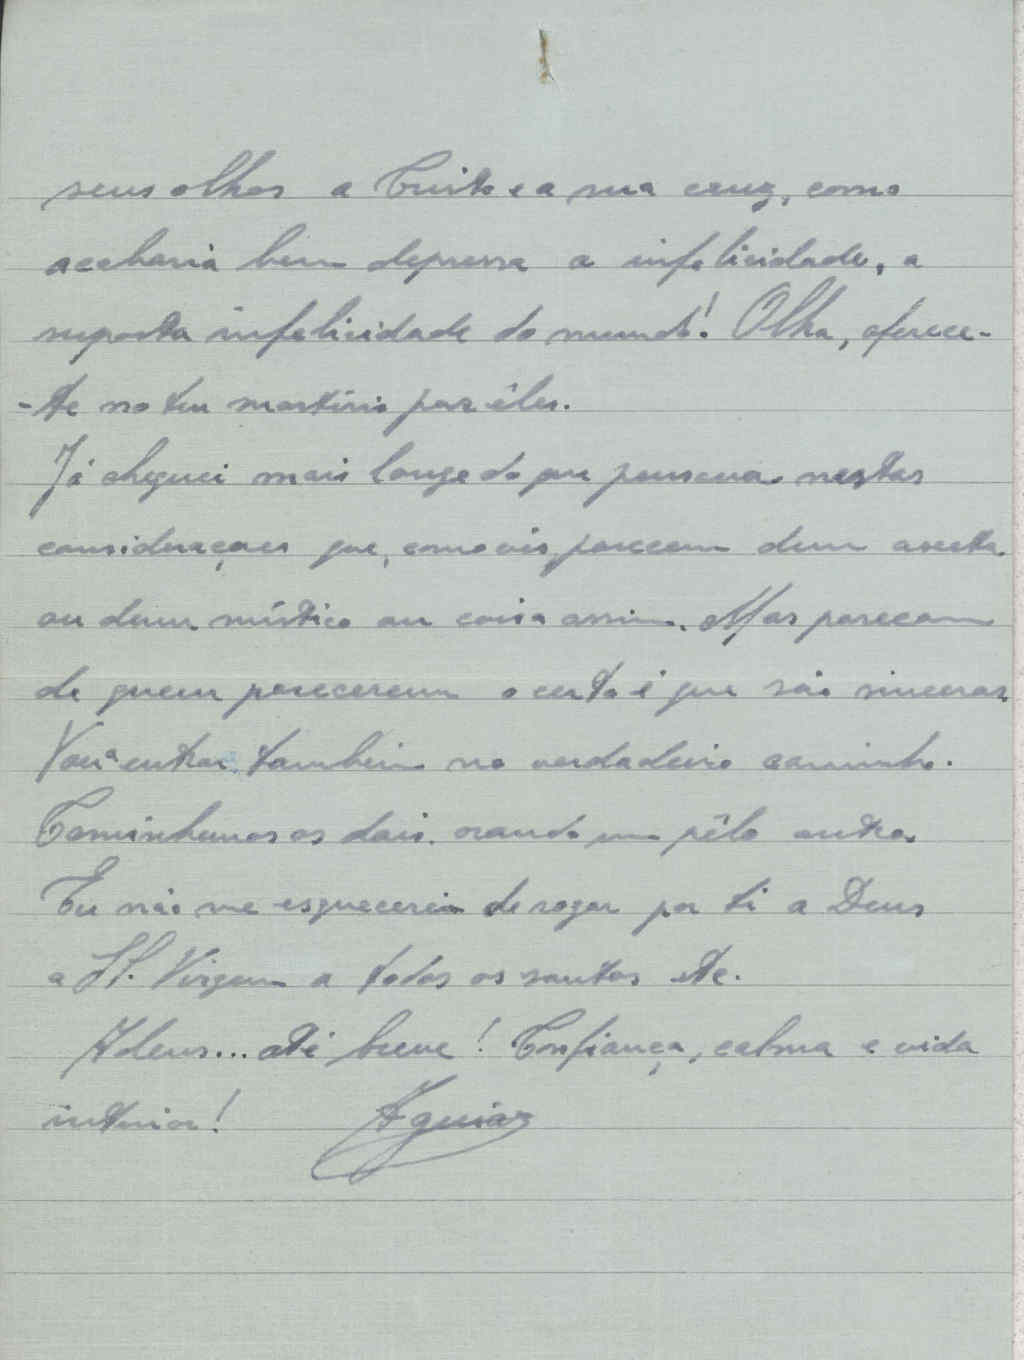 seus olhos a Cristo e a sua cruz, como
acabaria bem depressa a infelicidade, a
suposta infelicidade do mundo! Olha, oferece-
-te no teu martírio por êles.
Já cheguei mais longe do que pensava nestas
considerações que, como vês, parecem dum asceta
ou dum místico ou coisa assim. Mas pareçam
de quem parecerem o certo é que são sinceras
Vou a entrar também no verdadeiro caminho.
Caminhemos os dois. orando um pêlo outro.
Eu não me esquecerei de rogar por ti a Deus
a SS. Virgem a todos os santos etc.
Adeus... até breve! Confiança, calma e vida
interior! Aguiar